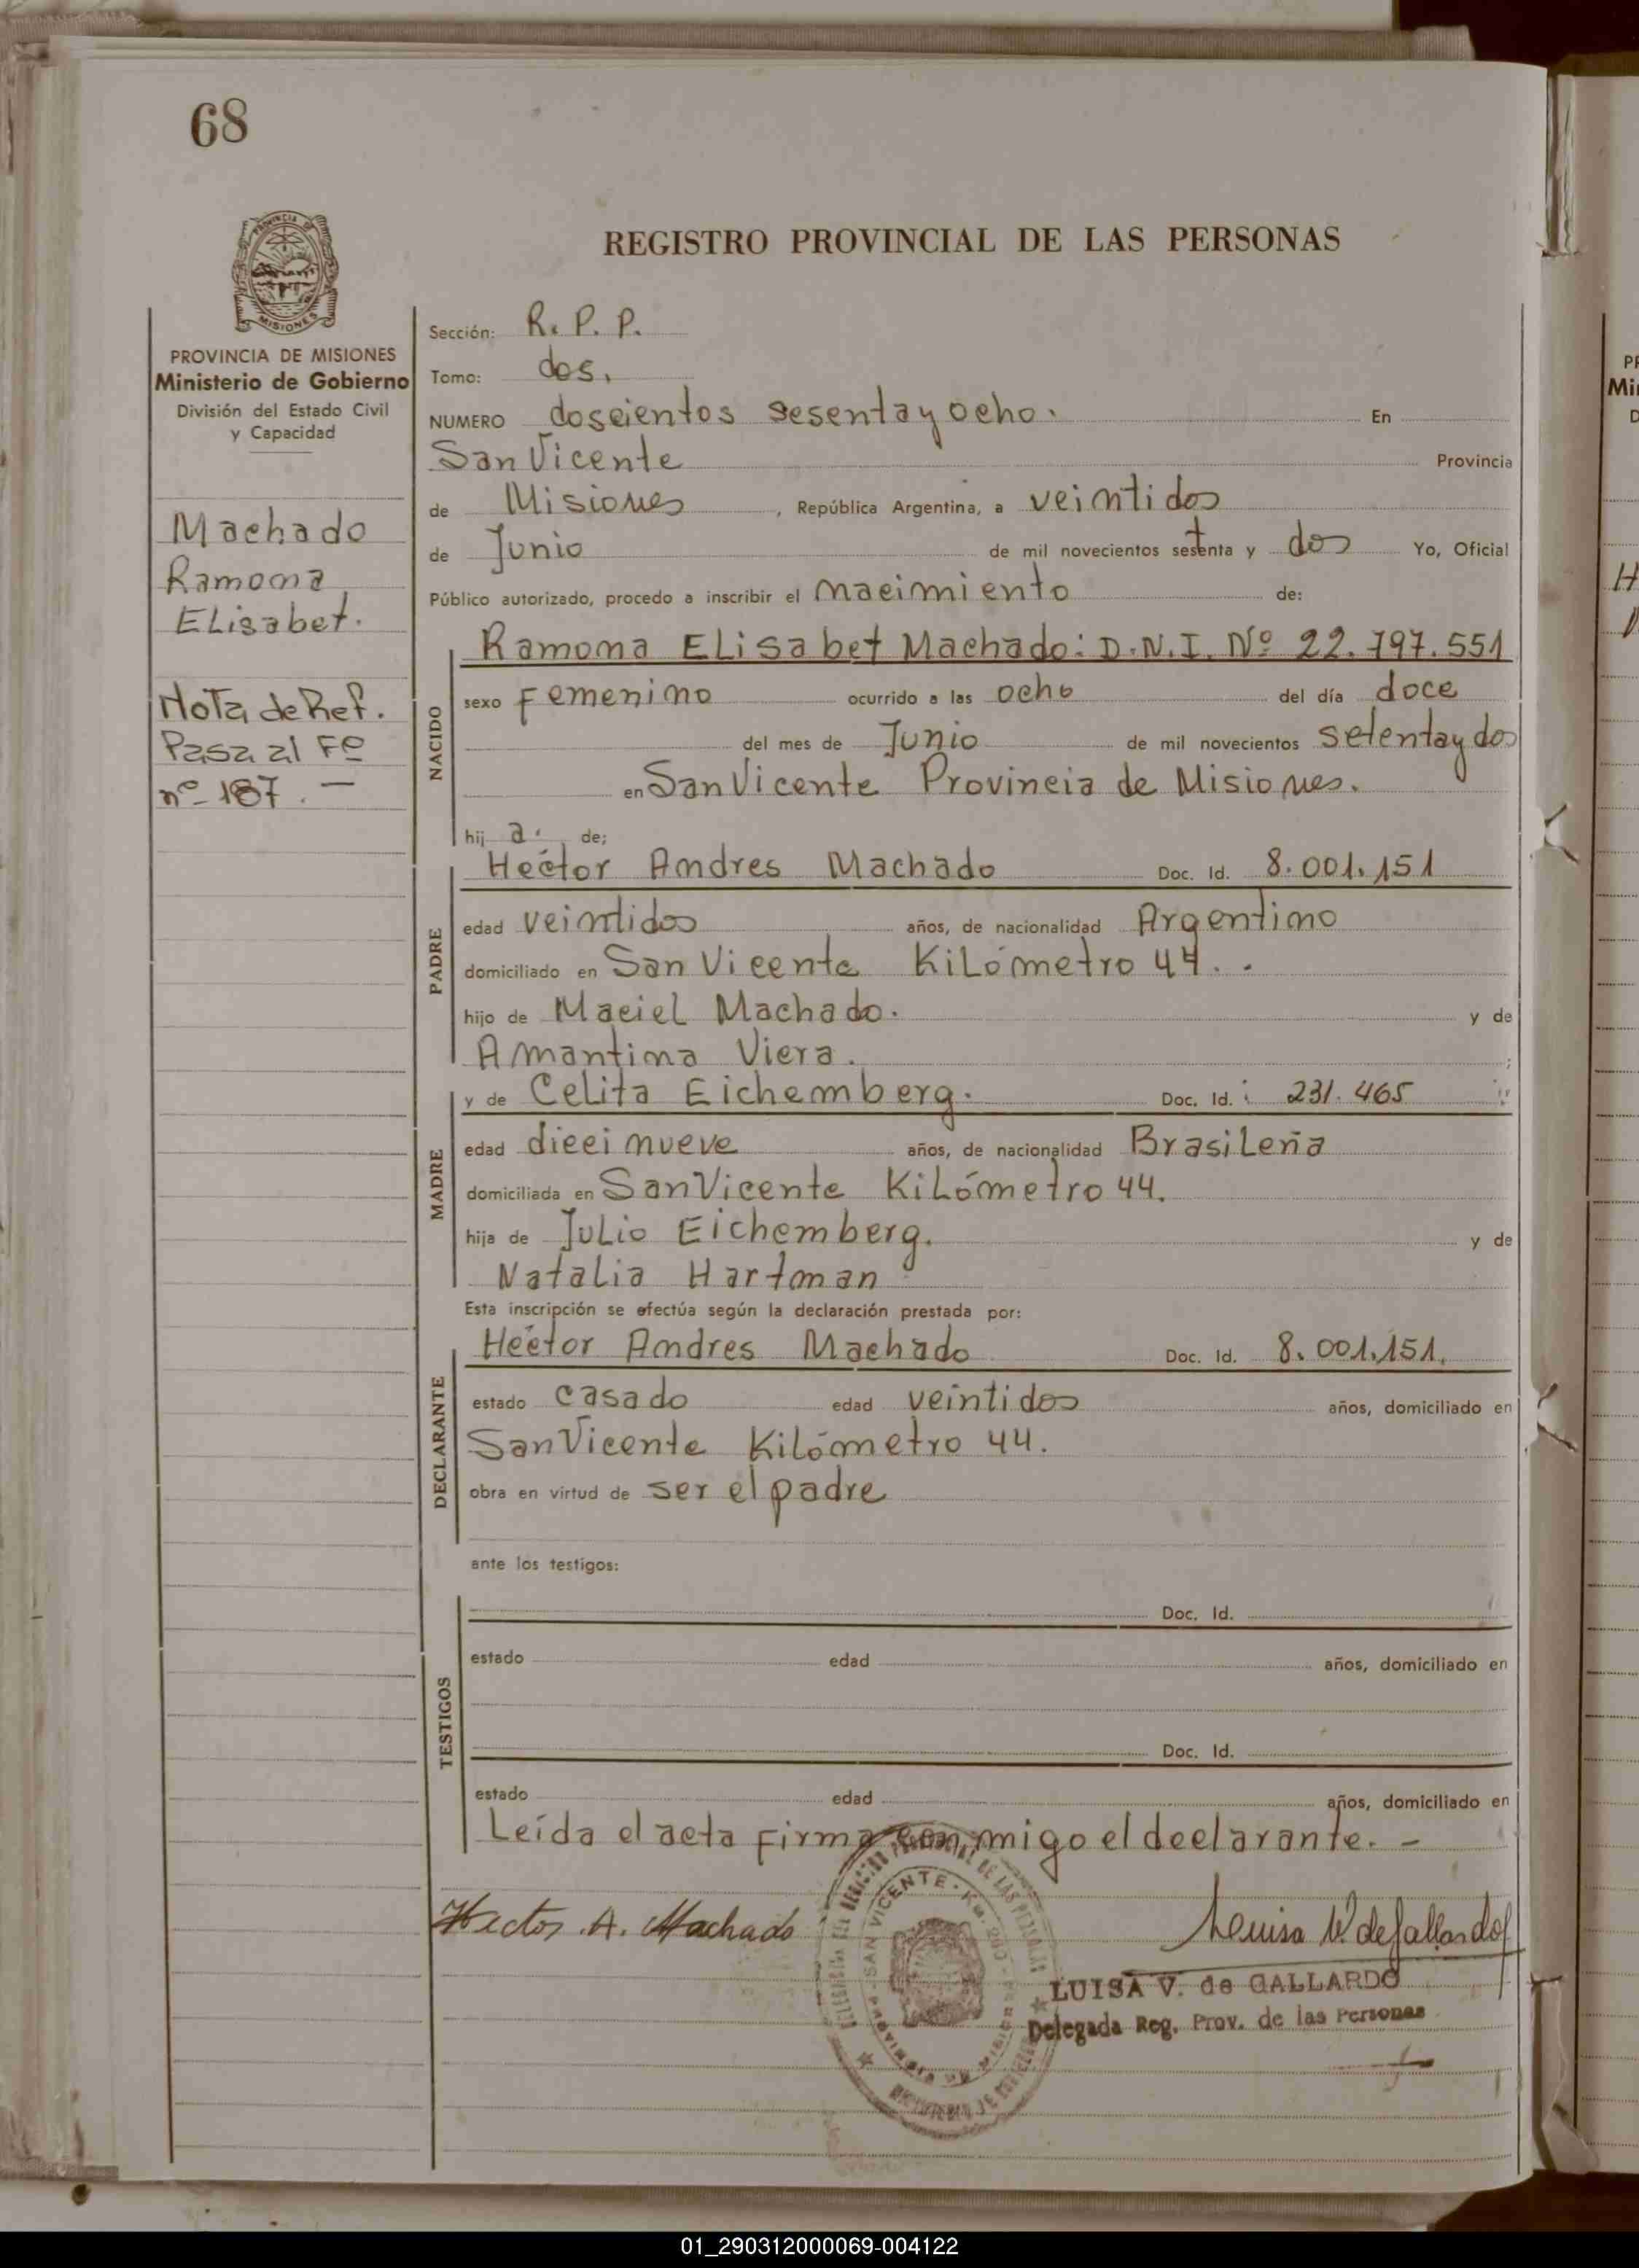 68
PROVINCIA DE
MISIONES
PROVINCIA DE MISIONES
Ministerio de Gobierno
División del Estado Civil
y Capacidad
Machado
Ramona
ELisabet.
Nota de Ref.
Pasa al Fº
nº 187. —
REGISTRO PROVINCIAL DE LAS PERSONAS
Sección: R. P. P.
Tomo: dos.
NUMERO doscientos sesenta y ocho. En
San Vicente Provincia
de Misiones, República Argentina, a veintidos
de Junio de mil novecientos setenta y dos Yo, Oficial
Público autorizado, procedo a inscribir el nacimiento de:
NACIDO
Ramona ELisabet Machado: D.N.I. Nº 22.797.551
sexo Femenino ocurrido a las ocho del día doce
del mes de Junio de mil novecientos setenta y dos
en San Vicente Provincia de Misiones.
hij a. de;
PADRE
Hector Andres Machado Doc. Id. 8.001.151
edad veintidos años, de nacionalidad Argentino
domiciliado en San Vicente KiLómetro 44..
hijo de Maciel Machado. y de
Amantina Viera. ;
MADRE
y de Celita Eichemberg. Doc. Id. : 231.465
edad diecinueve años, de nacionalidad BrasiLeña
domiciliada en San Vicente KiLómetro 44.
hija de JuLio Eichemberg. y de
NataLia Hartman
Esta inscripción se efectúa según la declaración prestada por:
DECLARANTE
Hector Andres Machado Doc. Id. 8.001.151.
estado casado edad veintidos años, domiciliado en
San Vicente Kilómetro 44.
obra en virtud de ser el padre
ante los testigos:
TESTIGOS
Doc. Id.
estado edad años, domiciliado en
Doc. Id.
estado edad años, domiciliado en
Leída el acta firma con migo el declarante. -
Hector A. Machado
Luisa V. de Gallardo
SAN VICENTE
LUISA V. de GALLARDO
Delegada Reg. Prov. de las Personas
PR
Min
D
01_290312000069-004122